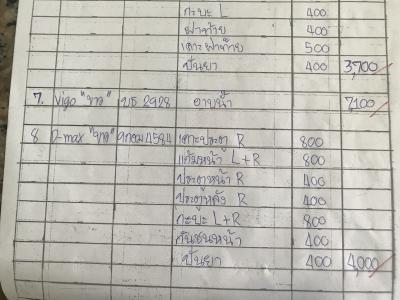 กะบะ L 400
ฝาท้าย 400
เคาะฝาท้าย 500
ปั่นยา 400 3,700
7. Vigo "ขาว" บร 2928 อาบน้ำ 7100
8 D-max "ขาว" 4584 เคาะประตู R 800
แก้มหน้า L+R 800
ประตูหน้า R 400
ประตูหลัง R 400
กะบะ L+R 800
กันชนหน้า 400
ปั่นยา 400 4,000